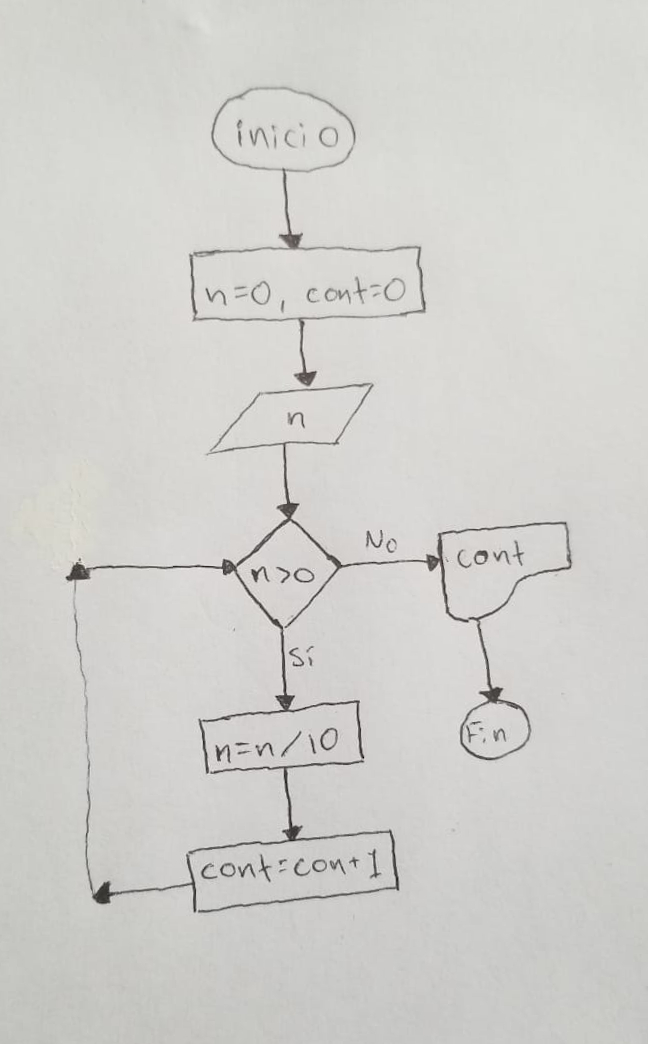 inicio
n=0, cont=0
n
n>0
No
cont
Sí
n=n/10
Fin
cont=con+1